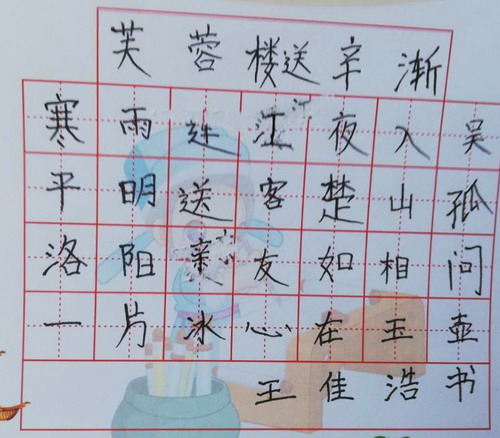 芙蓉楼送辛渐
寒雨连江夜入吴
平明送客楚山孤
洛阳亲友如相问
一片冰心在玉壶
王佳浩书